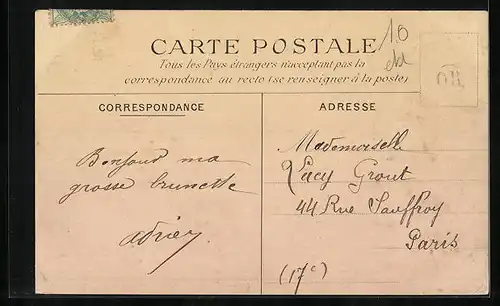 10
CARTE POSTALE
Tous les Pays étrangers n'acceptant pas la
correspondance au recto (se renseigner à la poste)
CORRESPONDANCE
ADRESSE
Bonjour ma
grosse brunette
Mademoiselle
Lucy Grout
44 Rue Jouffroy
Paris
(17e)